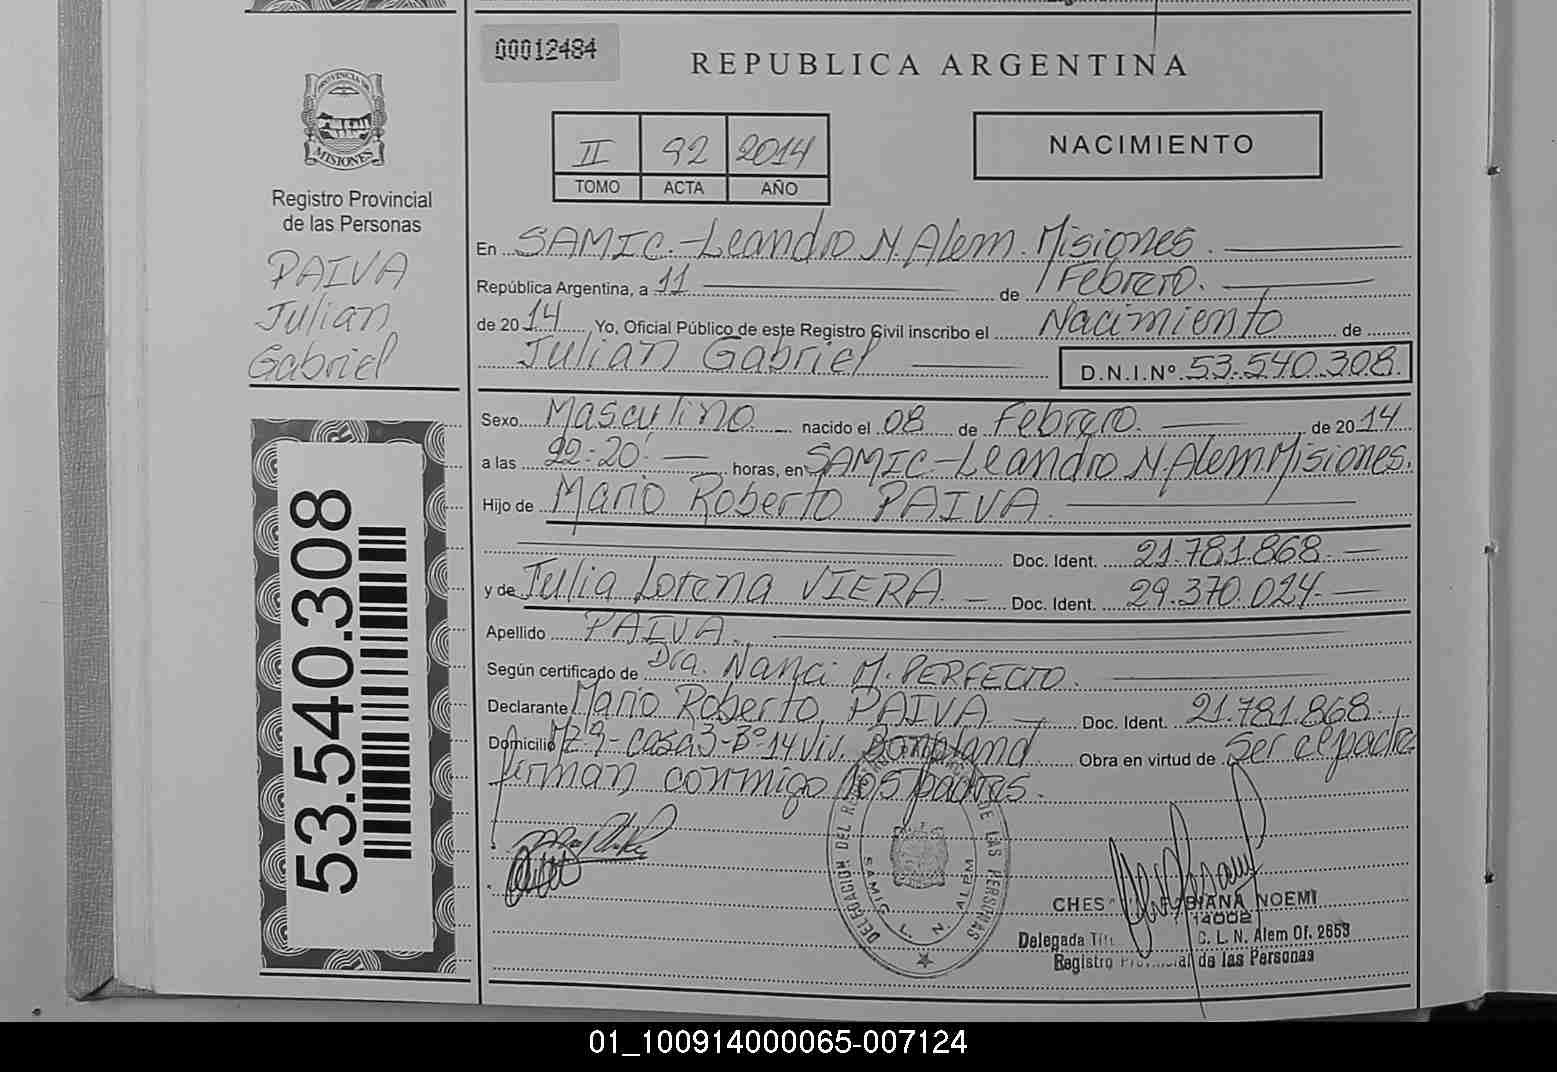 00012484
REPUBLICA ARGENTINA
II 92 2014
TOMO ACTA AÑO
NACIMIENTO
PROVINCIA DE
MISIONES
Registro Provincial
de las Personas
PAIVA
Julian
Gabriel
53.540.308
En SAMIC.-Leandro N. Alem. Misiones.
República Argentina, a 11 de Febrero.
de 2014 Yo, Oficial Público de este Registro Civil inscribo el Nacimiento de
Julian Gabriel D.N.I.Nº 53.540.308.
Sexo Masculino nacido el 08 de Febrero. de 2014
a las 22:20' horas, en SAMIC-Leandro N. Alem. Misiones.
Hijo de Mario Roberto PAIVA.
Doc. Ident. 21.781.868.
y de Julia Lorena VIERA. Doc. Ident. 29.370.024.
Apellido PAIVA.
Según certificado de Dra. Nanci M. PERFECTO.
Declarante Mario Roberto PAIVA Doc. Ident. 21.781.868.
Domicilio Mz 9-casa 3-Bº 14 Viv. Bonpland Obra en virtud de Ser el padre
firman conmigo los padres.
DELEGACION DEL DE LAS PERSONAS
SAMIC L. N. ALEM
CHES FABIANA NOEMI
14002
Delegada Tit. C. L. N. Alem Of. 2653
Registro Provincial de las Personas
01_100914000065-007124